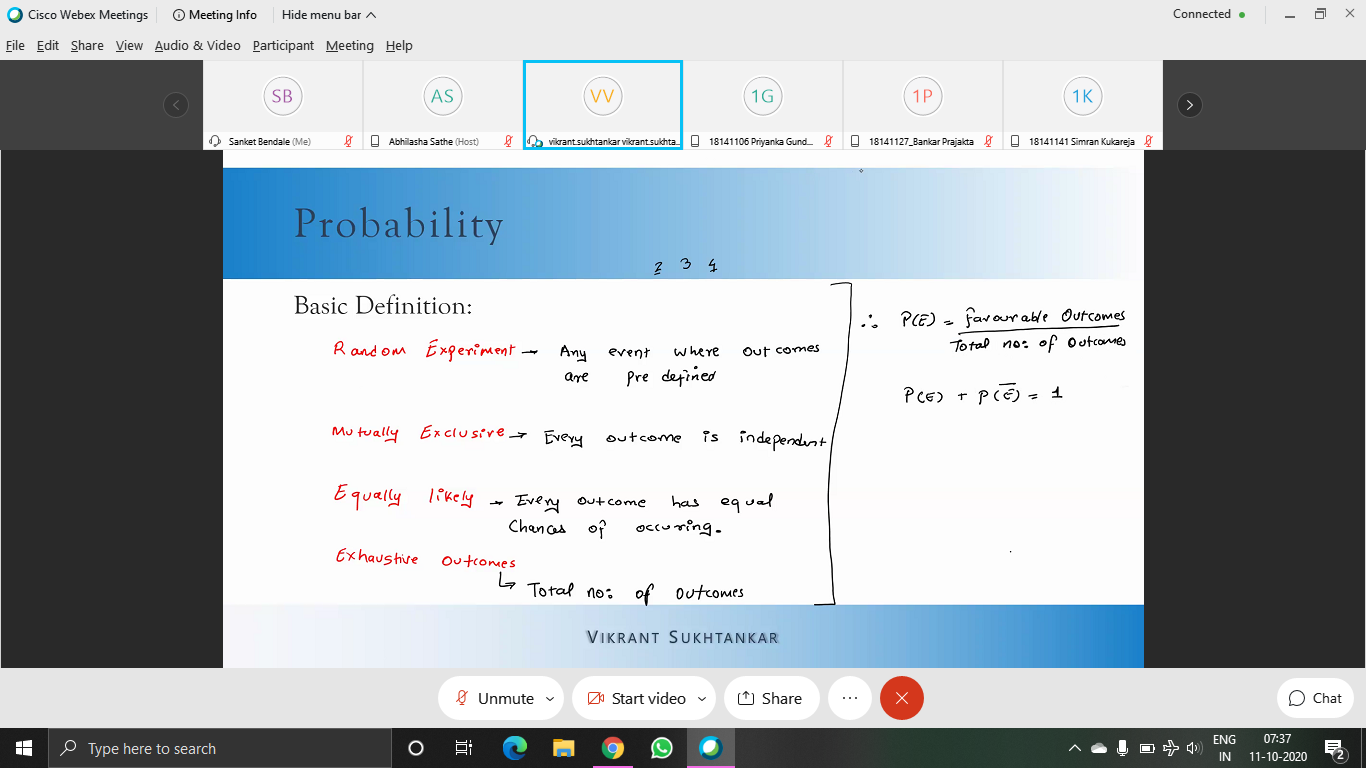 Cisco Webex Meetings
Meeting Info
Hide menu bar
Connected
File Edit Share View Audio & Video Participant Meeting Help
SB AS VV 1G 1P 1K
Sanket Bendale (Me)
Abhilasha Sathe (Host)
vikrant.sukhtankar vikrant.sukhta...
18141106 Priyanka Gund...
18141127_Bankar Prajakta
18141141 Simran Kukareja
Probability
2 3 4
Basic Definition:
Random Experiment → Any event where outcomes
are pre defined
Mutually Exclusive → Every outcome is independent
Equally likely → Every outcome has equal
Chances of occuring.
Exhaustive Outcomes
↳ Total no: of outcomes
∴ P(E) = favourable Outcomes
Total no: of outcomes
P(E) + P(E̅) = 1
VIKRANT SUKHTANKAR
Unmute
Start video
Share
Chat
Type here to search
ENG
IN
07:37
11-10-2020
2